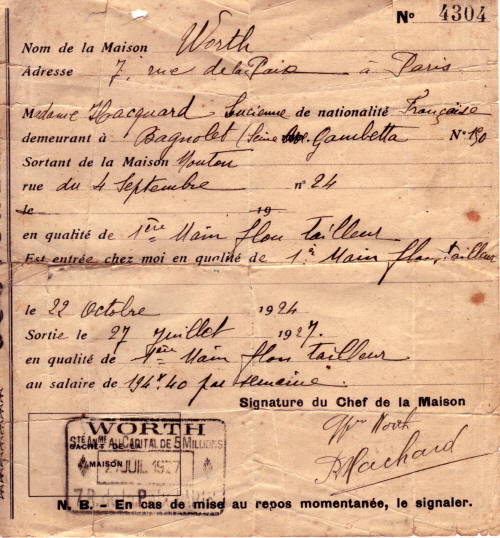 No 4304
Nom de la Maison Worth
Adresse 7, rue de la Paix à Paris
Madame Hacquard Lucienne de nationalité Française
demeurant à Bagnolet (Seine) Gambetta No 150
Sortant de la Maison Mouton
rue du 4 Septembre no 24
le 19
en qualité de 1ère Main flou tailleur
Est entrée chez moi en qualité de 1è Main flou, tailleur
le 22 Octobre 1924
Sortie le 27 Juillet 1927.
en qualité de 1ère Main flou tailleur
au salaire de 194f.40 par semaine.
Signature du Chef de la Maison
Worth
WORTH
STÉ ANME AU CAPITAL DE 5 MILLIONS
CACHET DE LA
MAISON
27 JUIL 1927
N. B. - En cas de mise au repos momentanée, le signaler.